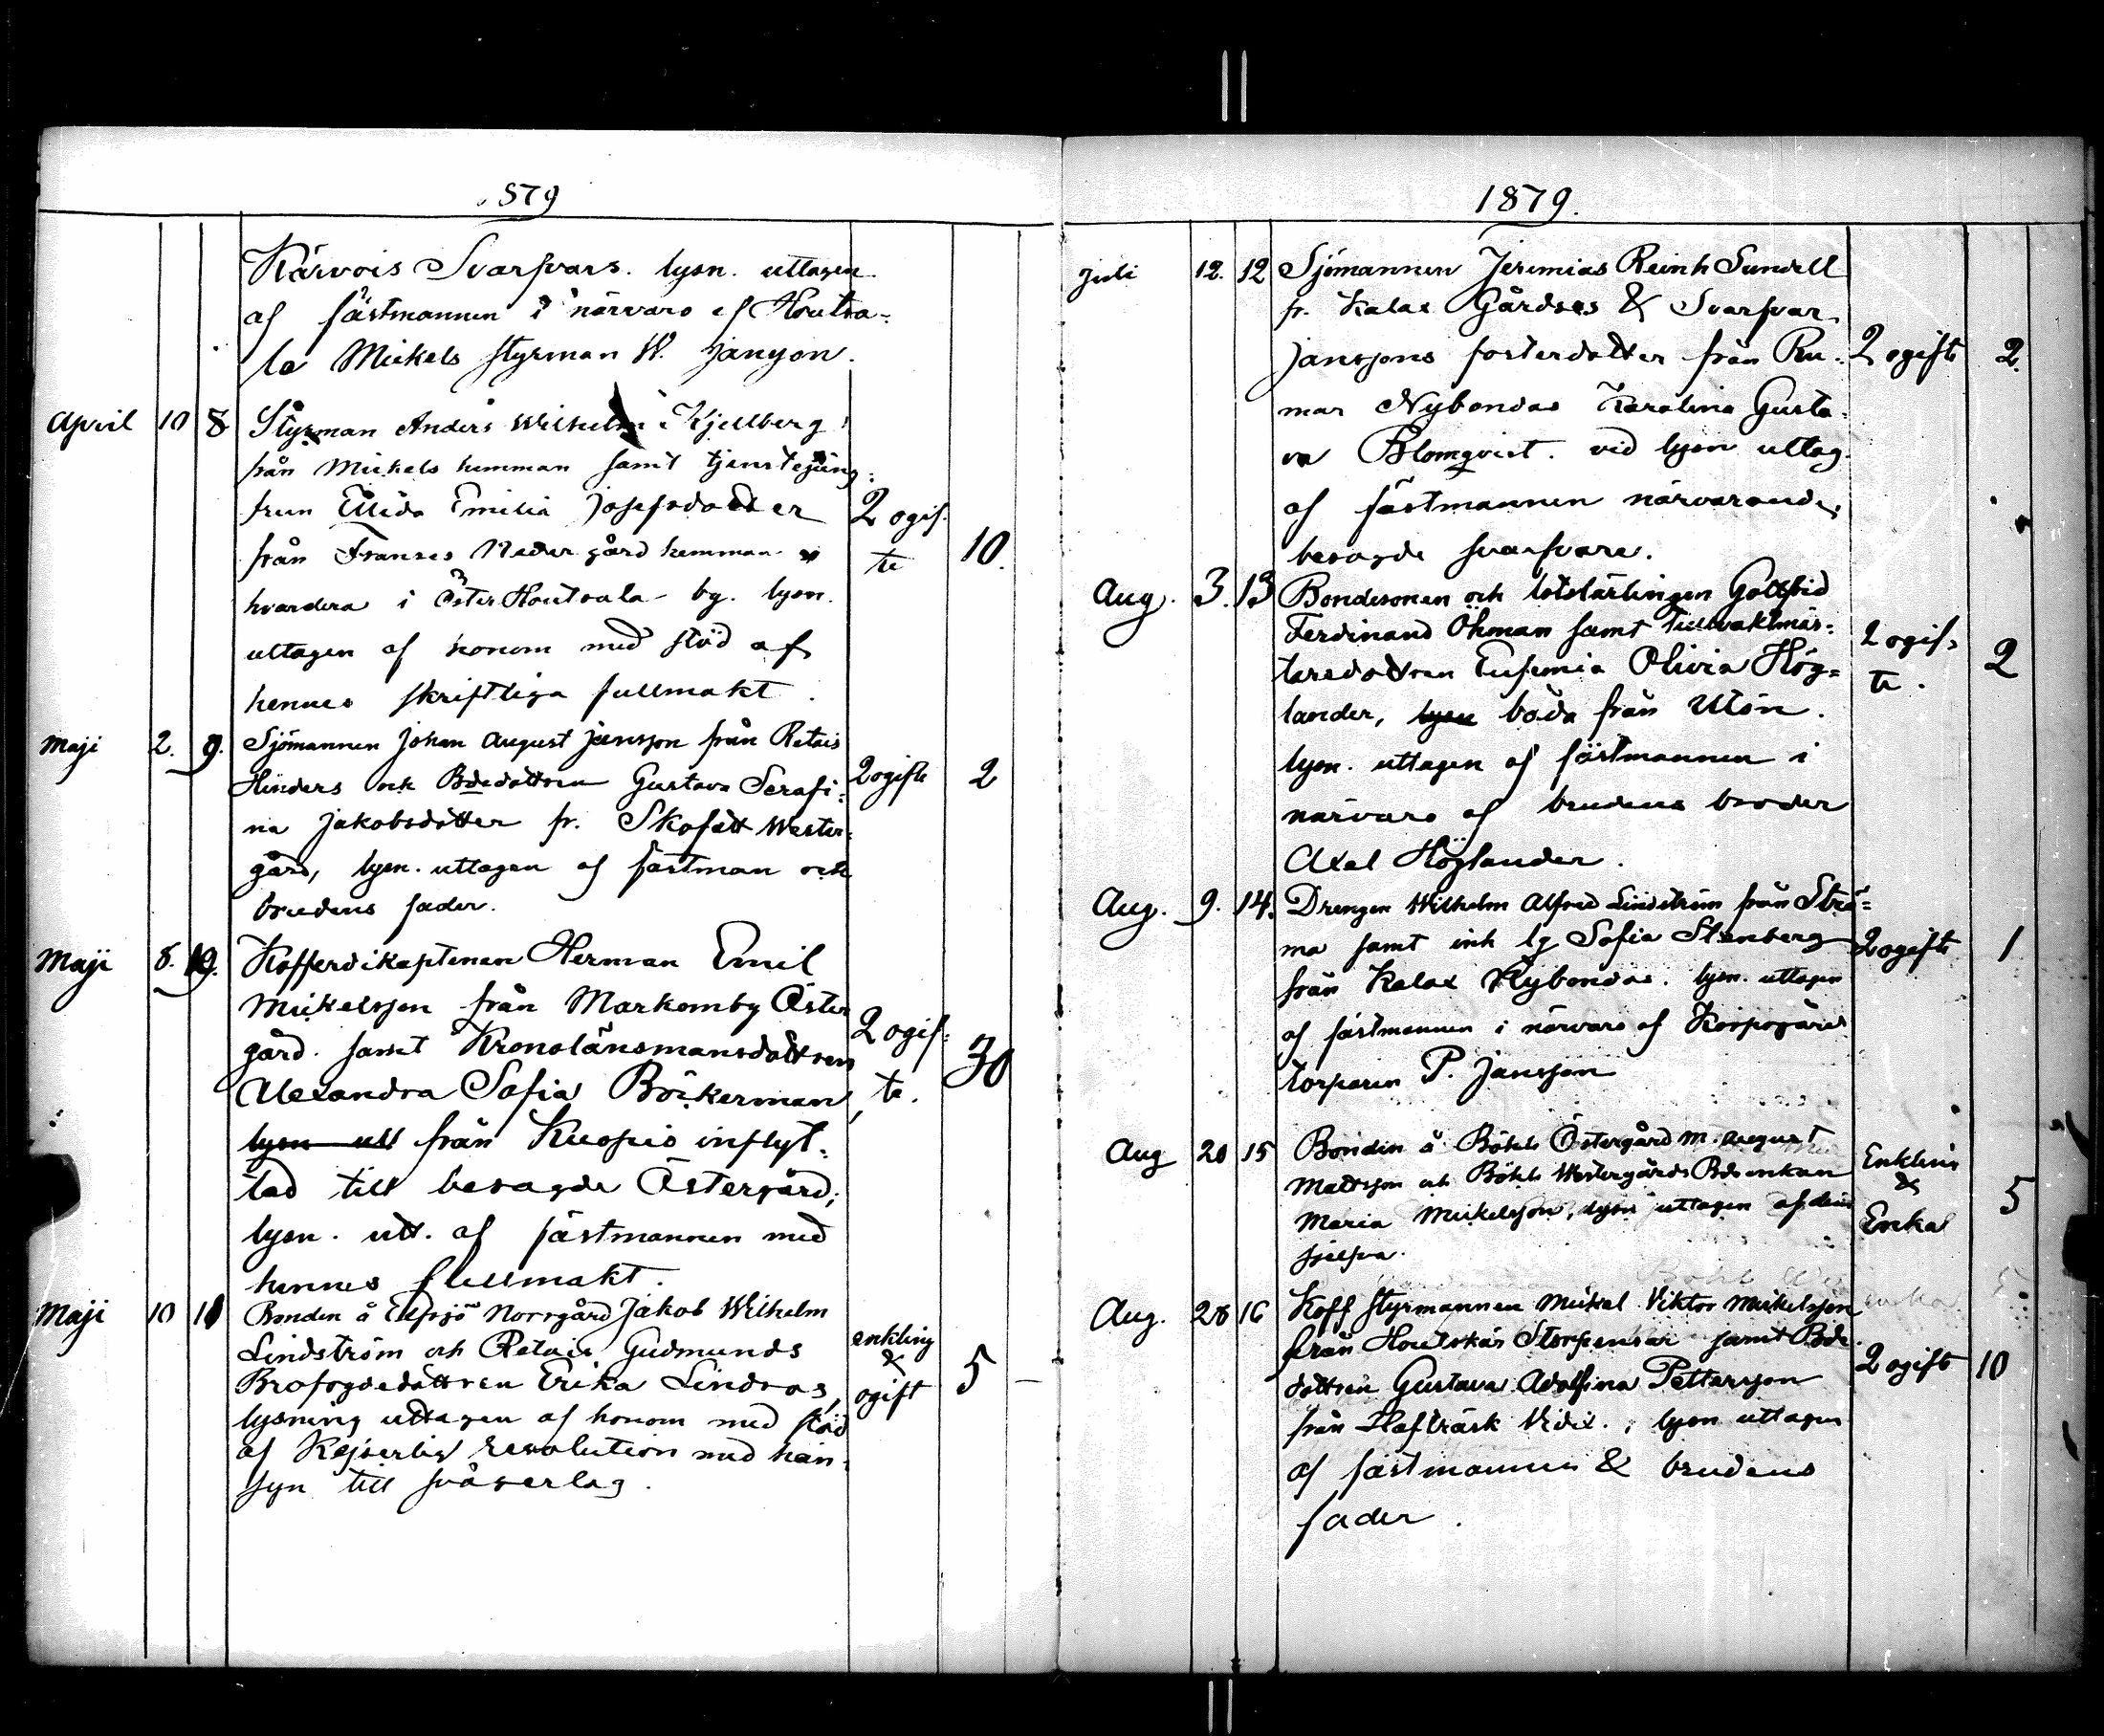 1879
Kärvois Svarfvars. lysn. uttagen
af fästmannen i närvaro af Houtsa-
la Mickels styrman W. Jansson.
April 10 8 Styrman Anders Wilhelm Kjellberg
från Mickels hemman samt tjenstejung-
frun Ellida Emilia Josefsdotter
från Franses Nedergård hemman
hvardera i Öster Houtsala by. lysn.
uttagen af honom med stöd af
hennes skriftliga fullmakt.
2 ogif-
te
10.
Maji 2. 9. Sjömannen Johan August Jansson från Retais
Hinders och Bdedottren Gustava Serafi-
na Jakobsdotter fr. Skofatt Wester-
gård, lysn. uttagen af fästman och
brudens fader.
2 ogifte
2
Maji 8. 9. Kofferdikaptenen Herman Emil
Mickelsson från Markomby Öster
gård. samt Kronolänsmansdottren
Alexandra Sofia Böckerman,
lysn utt från Kuopio inflyt-
tad till besagde Östergård;
lysn. utt. af fästmannen med
hennes fullmakt.
2 ogif-
te.
30
Maji 10 11 Bonden å Elfsjö Norrgård Jakob Wilhelm
Lindström och Retais Gudmunds
Brofogdedottren Erika Lindroos,
lysning uttagen af honom med stöd
af Kejserlig resolution med hän-
syn till svågerlag.
enkling
&
ogift
5 —
1879.
Juli 12. 12 Sjömannen Jeremias Reinh Sundell
fr. Kalax Gårdses & Svarfvar
Janssons fosterdotter från Ru-
mar Nybondas Karolina Gusta-
va Blomqvist. vid lysn uttag.
af fästmannen närvarande
besagde svarfvare.
2 ogifte
2.
Aug. 3. 13 Bondesonen och lotslärlingen Gottfrid
Ferdinand Öhman samt Tullvaktmäs-
taredottren Eufemia Olivia Hög-
lander, lysn båda från Utön.
lysn. uttagen af fästmannen i
närvaro af brudens broder
Axel Höglander.
2 ogif-
te.
2
Aug. 9. 14. Drengen Wilhelm Alfred Lindström från Strö-
ma samt inh lg Sofia Stenberg
från Kalax Nybondas. lysn. uttagen
af fästmannen i närvaro af Korpogård
torparen P. Jansson
2 ogifte
1
Aug 20 15 Bonden å Böhle Östergård M. August
Mattsson och Böhle Westergårds Bdeenkan
Maria Mickelsson, lysn uttagen af dem
sjelfva.
Enkling
&
Enka
5
Aug. 28 16 Koff styrmannen Mickel Viktor Mickelsson
från Houtskär Storpensar samt Bde-
dottren Gustava Adolfina Pettersson
från Hafträsk Vidix., lysn uttagen
af fästmannen & brudens
fader.
2 ogifte
10